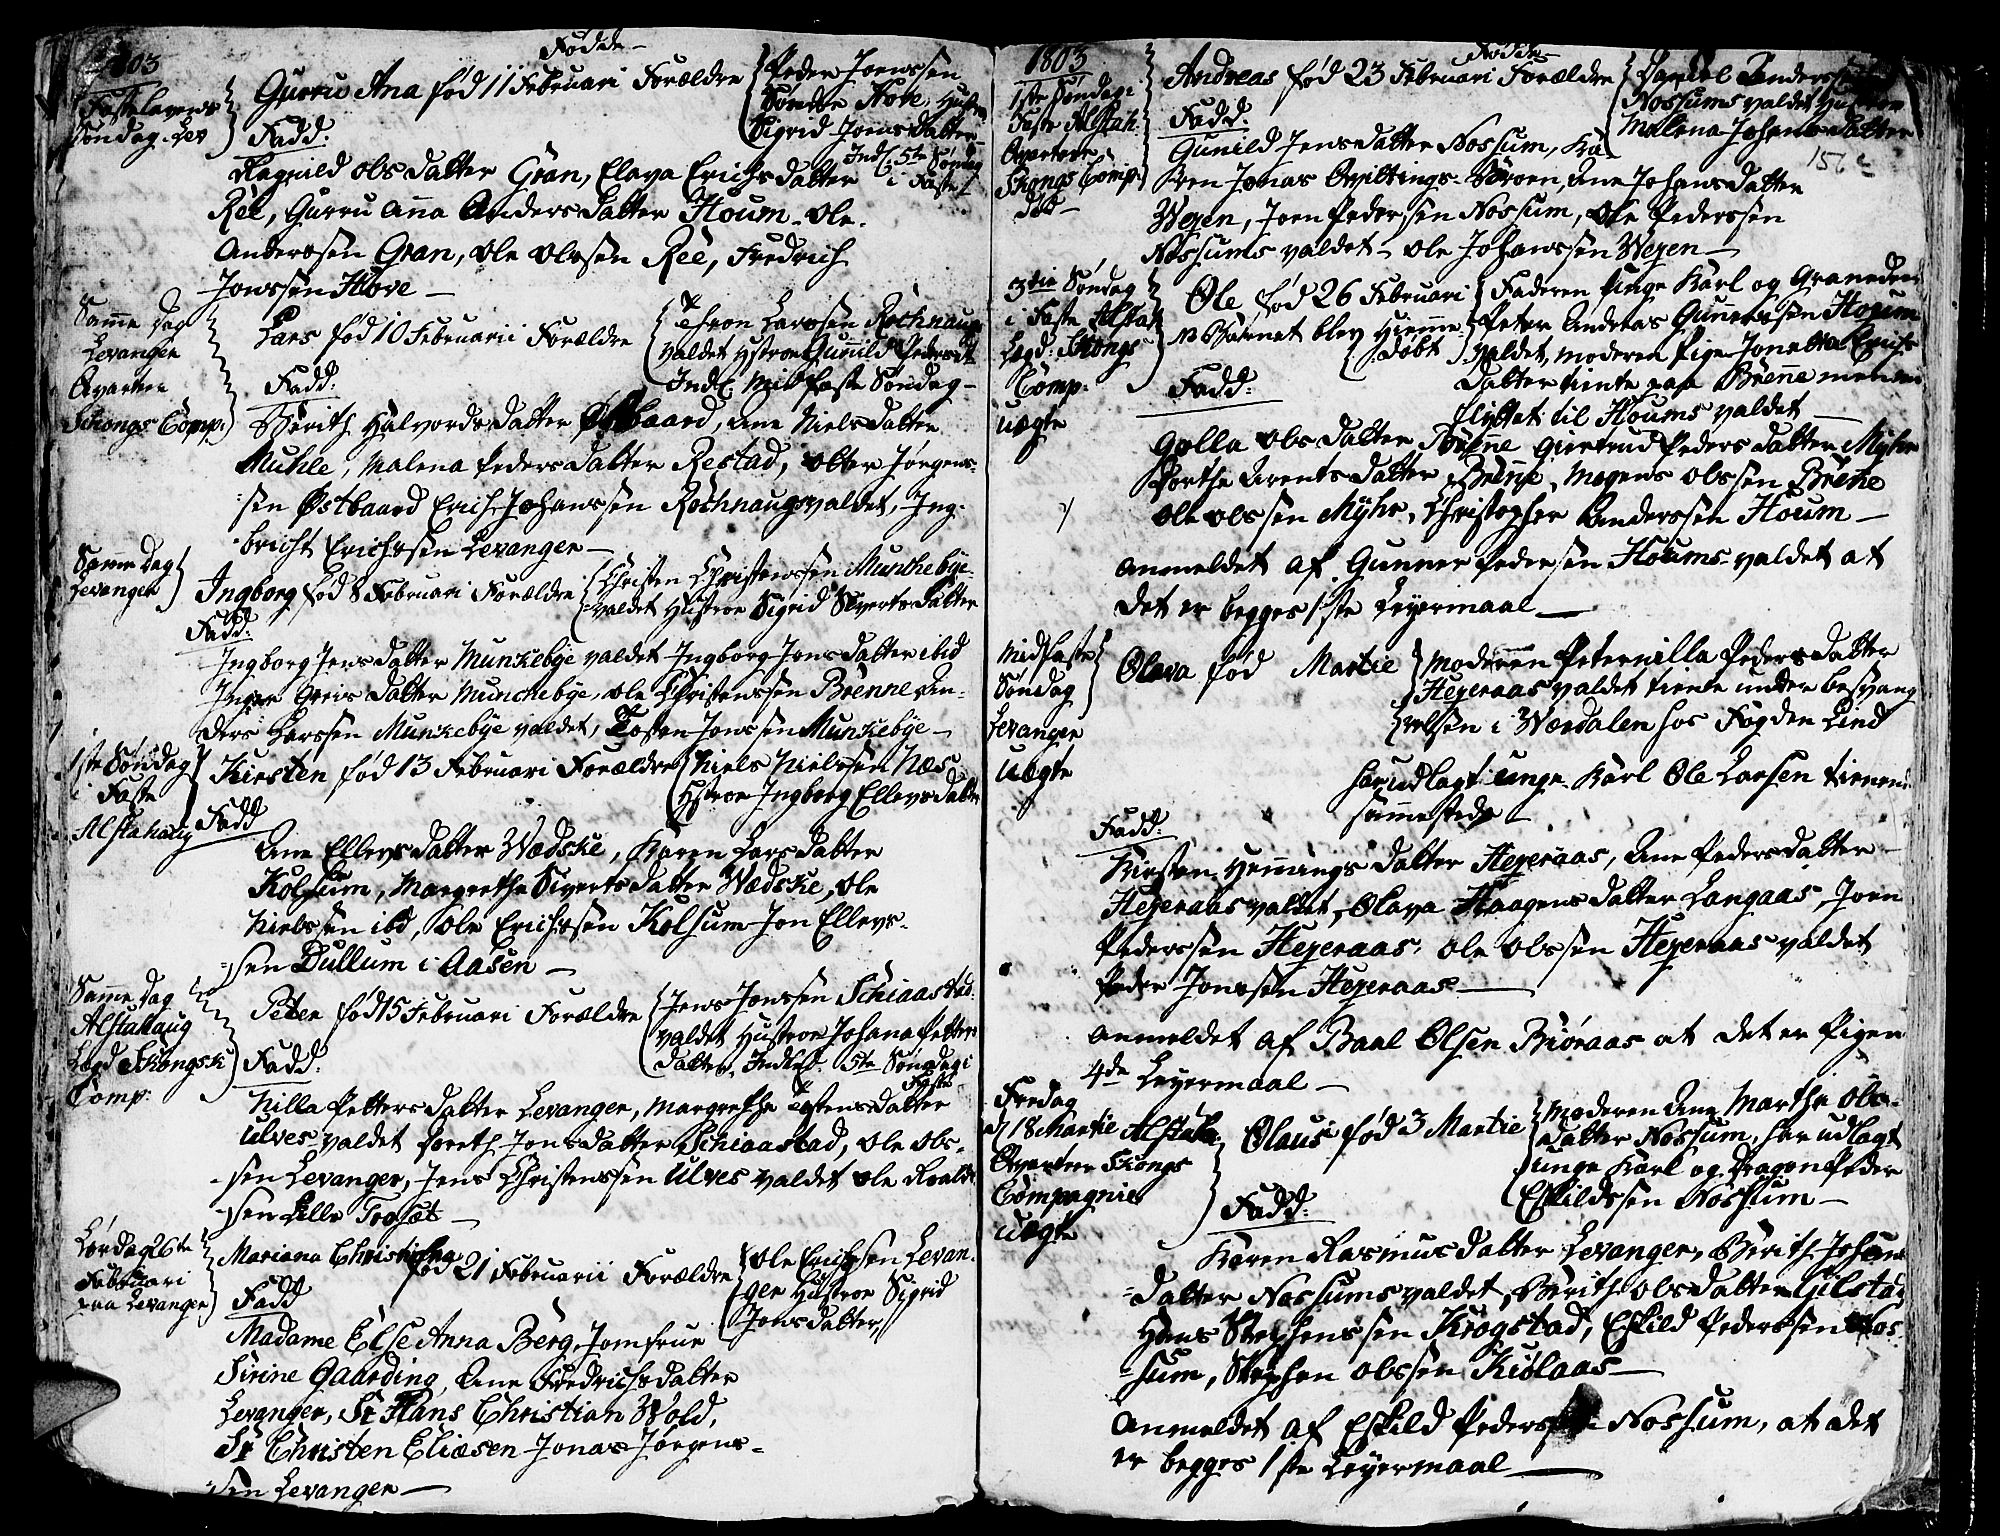 1803
Fødde
Fastelavens
Søndag Lev
Gurru Ana fød 11 Februari Forældre
Peder Joenssen
Søndre Hove Hustr
Sigrid Joens Datter
Indl: 5te Søndag
i Faste
Fadd:
Ragnild Ols Datter Gran, Elava Erichs Datter
Ree, Gurru Anna Anders Datter Houm Ole
Anderssen Gran, Ole Olssen Ree, Fredrich
Jonssen Hove
Samme Dag
Levanger
Qvarteer
Skongs Comp:
Lars fød 10 Februarii Forældre
Thron Larssen Rochnaugs
valdet Hstroe Gunnild Peders D
Indl. Midfaste Søndag
Fadd:
Berith Halvords Datter Østbaard, Ane Niels Datter
Muhle, Malena Peders Datter Restad, Jørgens
sen Østbaard Erich Johanssen Rochnaugsvaldet, Ing
bricht Erichssen Levanger
Samme Dag
Levanger
Ingborg fød 8 Februari Forældre
Christen Christenssen Munkebye
valdet Hustroe Sigrid Siverts Datter
Fadd:
Ingborg Jens Datter Munkebye valdet Ingborg Jons Datter ibid
Inger Datter Munckebye, Ole Christenssen Brenne An
ders Larssen Munkebye valdet, Tosten Jonssen Munkebye
1ste Søndag
i Faste
Alstahaug
Kirsten fød 13 Februari Forældre
Niels Nielssen Næs
Hstroe Ingborg Ellevs Datter
Fadd
Ane Ellevs Datter Wædske, Karen Lars Datter
Kolsum, Margrethe Siverts Datter Wædske, Ole
Nielssen ibd, Ole Erichssen Kolsum Jon Ellevs
sen Dullum i Aasen
Samme Dag
Alstahaug
Lægd Skongsk
Comp:
Peter fød 15 Februari Forældre
Jens Jonssen Schiaastad
valdet Hustroe Johana Petter
Datter, Indled. 5te Søndag i
Faste
Fadd:
Nilla Petters Datter Levanger, Margrethe Tostens Datter
Ulves valdet Jons Datter Schiaastad, Ole Ols
sen Levanger, Jens Christenssen Ulves valdet Ole Roald
sen Lille Togset
Lørdag 26te
Februari
paa Levanger
Mariana Christi
fød 21 Februarii Forældre
Ole Erichssen Levan
ger Hustroe Sigrid
Jons Datter
Fadd
Madame Else Anna Berg, Jomfrue
Sirine Gaarding, Ane Fredrichs Datter
Levanger, Sr Hans Christian Wold,
Sr Christen Eliæsen Jonas Jørgens
sen Levanger
1803
Fødde
1ste Søndag i
Faste Alstah.
Qvarteer
Skongs Comp:
Andreas fød 23 Februari Forældre
Daniel Anderssen
Nossums valdet Hustroe
Malena Johans Datter
151
Fadd:
Gunild Jens Datter Nossum, Ka
ren Jonas Qvittings Ane Johans Datter
Wejen, Joen Pederssen Nossum, Ole Pederssen
Nossums valdet Ole Johanssen Wejen
3die Søndag
i Faste Alstah
Lægd: Skongs
Comp:
uægte
Ole fød 26 Februari
N Barnet blev hiemme
døbt
Faderen unge Karl og Granedeer
Peter Andreas Gunnerssen Houm
valdet, moderen Pige Jonetta Erichs
Datter tiente paa Brenne men
flyttet til Houms valdet
Fadd:
Gølla Ols Datter Brenne Giertrud Peders Datter Myhr
Dorthe Arents Datter Brenne, Mogens Olssen Brene
Ole Olssen Myhr, Christopher Anderssen Houm
Anmeldet af Gunner Pedersen Houms valdet at
det er begges 1ste Leyermaal
Midfaste
Søndag
Levanger
uægte
Olava fød Martie
Moderen Peternilla Peders Datter
Hejeraas valdet tiente under besvang
relsen i Værdalen hos Fogden Lind
har udlagt unge Karl Ole Larsen tienende
sammestedz
Fadd:
Kirsten Hemmings Datter Hejeraas, Ane Peders Datter
Hejeraas valdet, Olava Haagens Datter Langaas, Joen
Pederssen Hejeraas, Ole Olssen Hejeraas valdet
Peder Jonssen Hejeraas
Anmeldet af Baal Olsen Biøraas at det er Pigen
4de Leyermaal
Fredag
18 Martie Alstah
Qvarteer Skongs
Compagnie
uægte
Olaus fød 3 Martie
Moderen Ane Marthe Ols
Datter Nossum, har udlagt
unge Karl og Dragon Peder
Eskildssen Nossum
Fadd:
Karen Rasmus Datter Levanger, Berith Johan
Datter Nossums valdet, Berith Ols Datter Gilstad
Hans Stephenssen Krogstad, Eskild Pederssen Nos
sum, Stephen Olssen Kiølaas
Anmeldet af Eskild Peders Nossum, at det
er begges 1ste Leyermaal